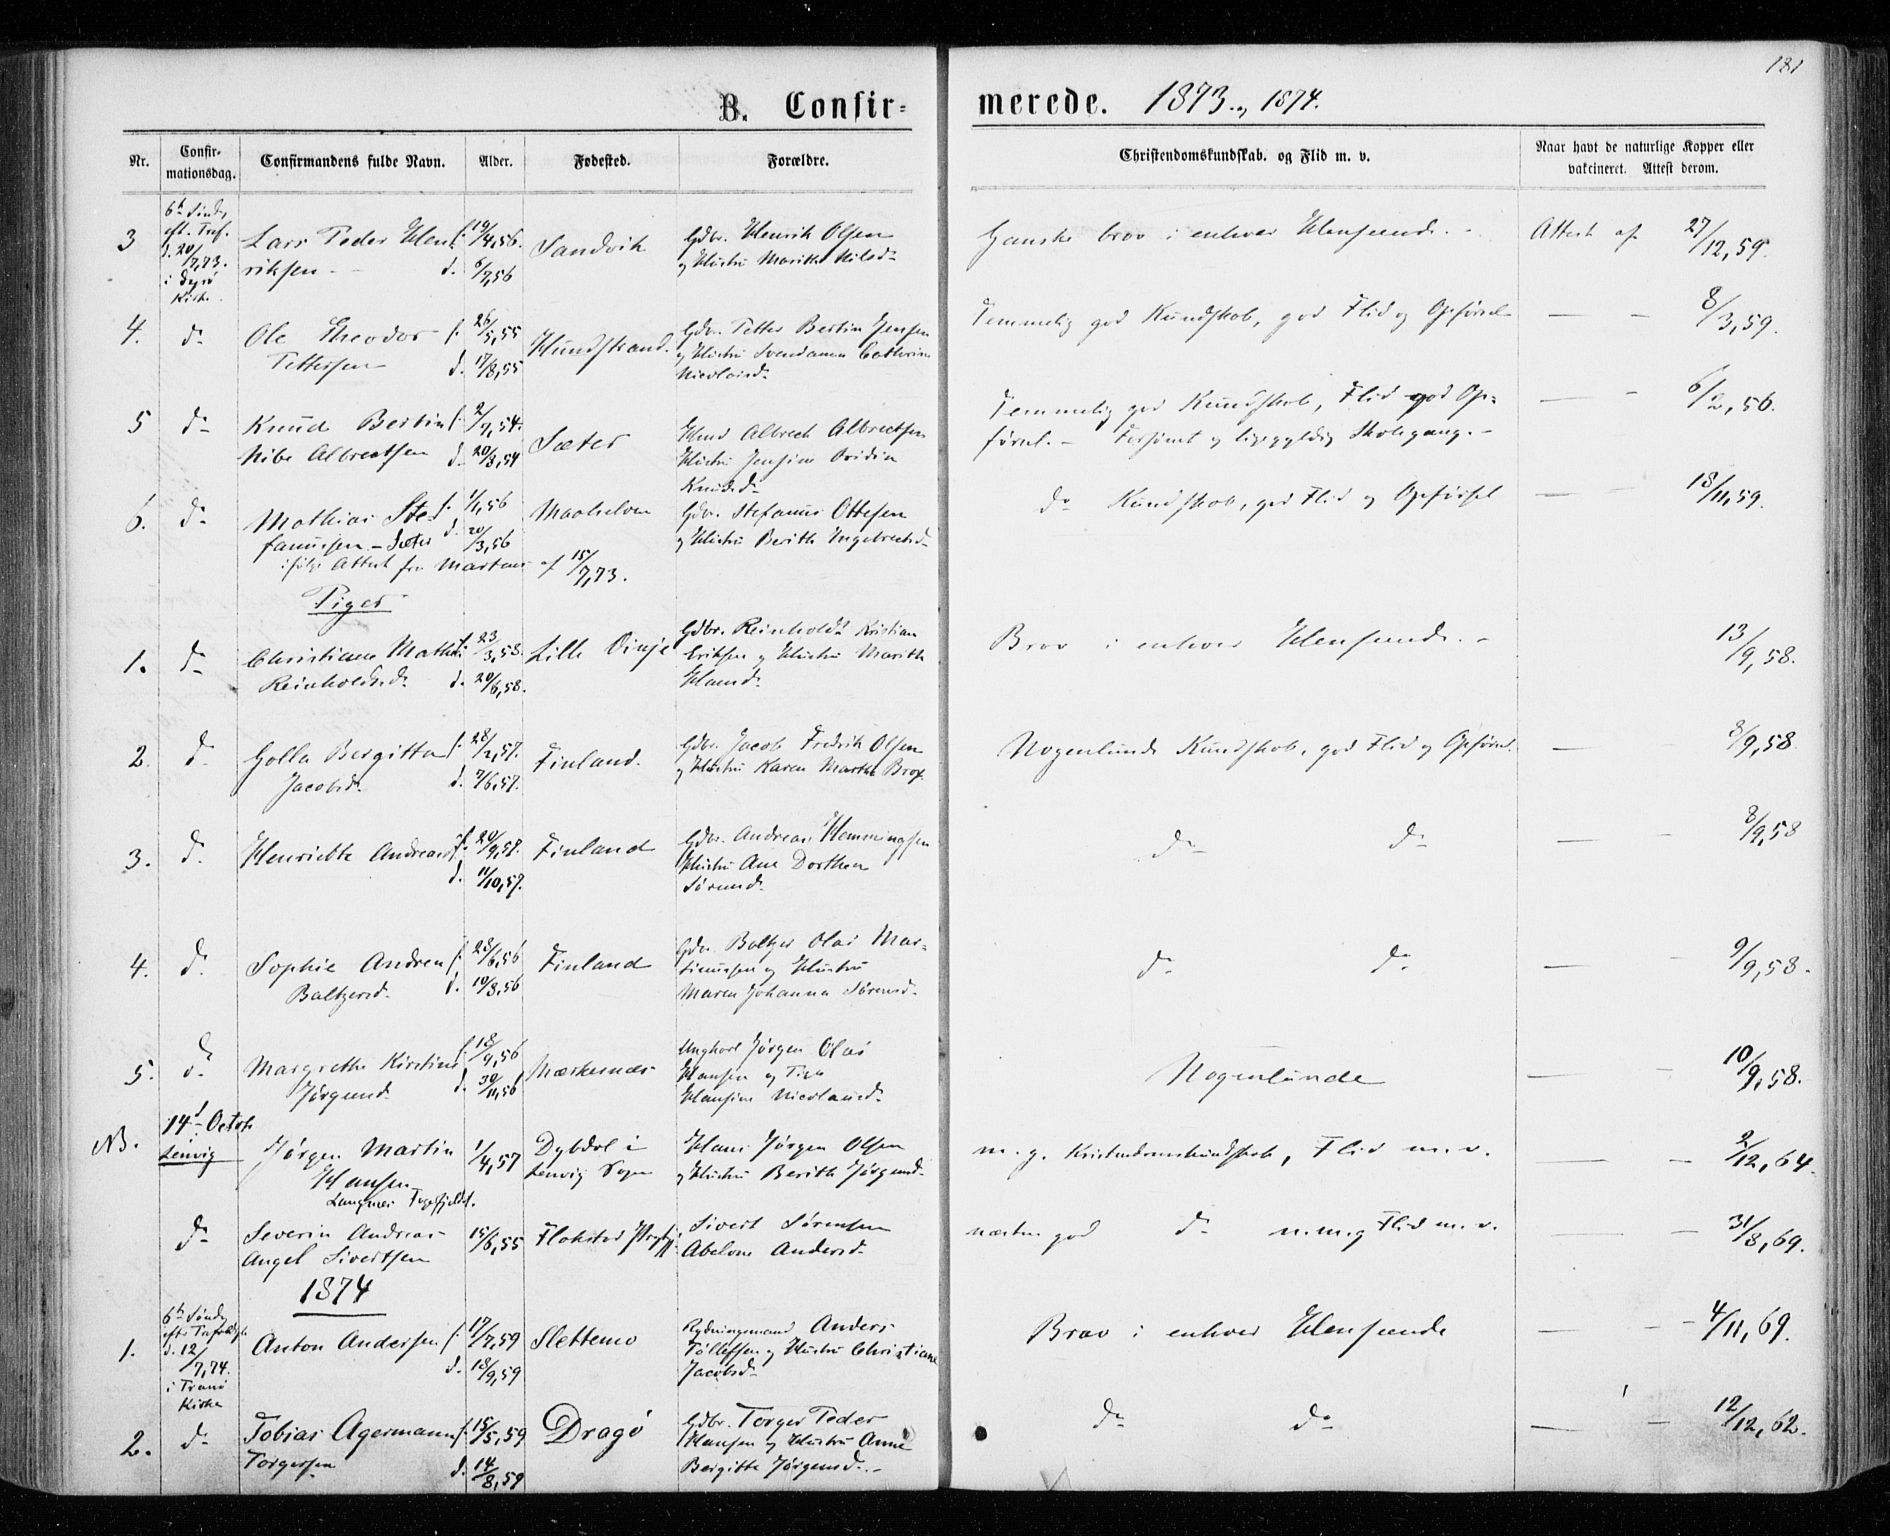 181
B. Confirmerede. 1873 og 1874.
Nr. Confirmationsdag. Confirmandens fulde Navn. Alder. Fødested. Forældre. Christendomskundskab. og Flid m. v. Naar havt de naturlige Kopper eller vakcineret. Attest derom.
3 6te Sønd. eft. Tref. d. 20/7,73. i Dyrø Kirke
Lars Peder Hen- f. 19/4,56. Sandvik Gdbr. Henrik Olsen Ganske brav i enhver Henseende. - Attest af 27/12,59.
riksen - d. 6/7,56 og Hustru Marith Nilsd.
4. do Ole Theodor f. 26/5,55 Hundstrand. Gdbr. Petter Bertin Jensen Temmelig god Kundskab, god Flid og Opførsel — - 8/3,59.
Pettersen d. 17/8,55 og Hustru Svendanna Cathrine
Nicolaisd.
5 do Knud Bertin f. 2/7,54. Sæter Hmd Albrecht Albrectsen Temmelig god Kundskab, Flid god Op- — - 6/2,56.
Nibe Albrectsen d. 20/8,54 Hustru Jensine Ovidia førsel. - Forsømt og ligegyldig Skolegang. -
Knudsd.
6. do Mathias Ste- f. 1/1,56 Maalselven Gdbr. Stefanus Ottesen do Kundskab, god Flid og Opførsel — — 18/11,59.
fanussen - Sæter d. 20/3,56 og Hustru Berith Ingebrectsd.
ifølge Attest fra Martens af 15/7,73.
Piger
1. do Christiane Mathi f. 23/3,58. Lille Vinje Gdbr. Reinholdt Kristian Brav i enhver Henseende. - 13/9,58.
Reinholdsd. d. 20/6,58. Eriksen og Hustru Marith
Hansd.
2. d. Golla Bergitta f. 28/2,57. Finland. Gdbr. Jacob Fredrik Olsen Nogenlunde Kundskab, god Flid og Opførsel. — — 8/9,58.
Jacobsd. d. 7/6,57. og Hustru Karen Martha Brox
3. d. Henriette Andreasd. f. 20/9,57. Finland Gdbr. Andreas Hemmingsen do do — - 8/9,58
d. 11/10,57. Hustru Ane Dorthea
Sørensd.
4. d. Sophie Andrea f. 28/6,56 Finland Gdbr Baltzer Olai Mar- do do — - 9/9,58.
Baltzersd. d. 10/8,56 tinussen og Hustru
Maren Johanna Sørensd.
5. do Margrethe Kirstine f. 18/9,56 Mærkenæs Ungkarl Jørgen Olai Nogenlunde — — 10/9,58.
Jørgensd. d. 30/11,56 Hansen og Pige
Hansine Nicolaisd.
NB. 14de Octob. Lenvig Jørgen Martin 1/4,57 Dybdal i Hans Jørgen Olsen m. g. Kristendomskundskab, Flid m. v. — - 2/12,64.
Hansen Lenvig Sogn og Hustru Berith Jørgensd.
Langnes
do Severin Andreas 15/6,55 Flakstad Prgj. Sivert Sørensen næsten god do m. m. g Flid m. v. — - 31/8,69.
Angel Sivertsen Abelone Andersd.
1874
1. 6te Sønd. efter Trefoldigh. d. 12/7,74. i Tranø Kirke Anton Andersen f. 17/7,59 Slettemo Rydningsmand Anders Brav i enhver Henseende — - 4/11,69.
d. 18/9,59 Tollefsen og Hustru Christiane
Jacobsd.
2. do Tobias Agermann f. 15/5,59 Dragø Gdbr. Torger Peder do do — - 12/12,62.
Torgersen d. 14/8,59 Hansen og Hustru Anne
Bergitte Jørgensd. -